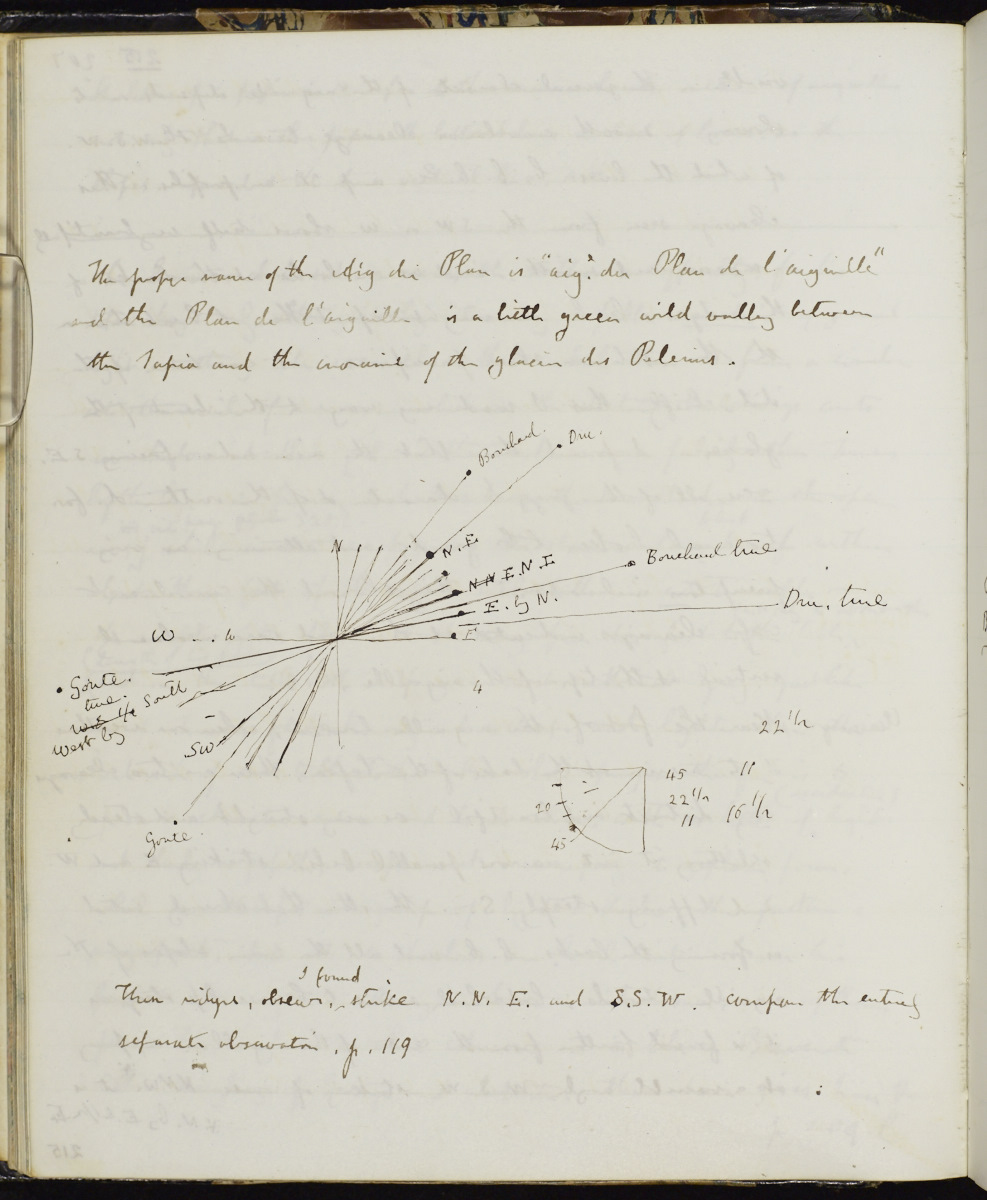 The proper name of the Aig du Plan is "aig.e du Plan de l'aiguille"
and the Plan de l'aiguille is a little green wild valley between
the Tapia and the moraine of the glacier des Pelerins.
Bouchard.
Dru.
N
N.E.
N N E.N.E
Bouchard true
E. by N.
Dru, true
W
E
Goute.
true.
South
West by
4
SW
22 1/2
45 11
22 1/2
11 16 1/2
20
45
Goute.
I found
These ridges, observe, strike N.N.E. and S.S.W. compare the entirely
separate observation, p. 119